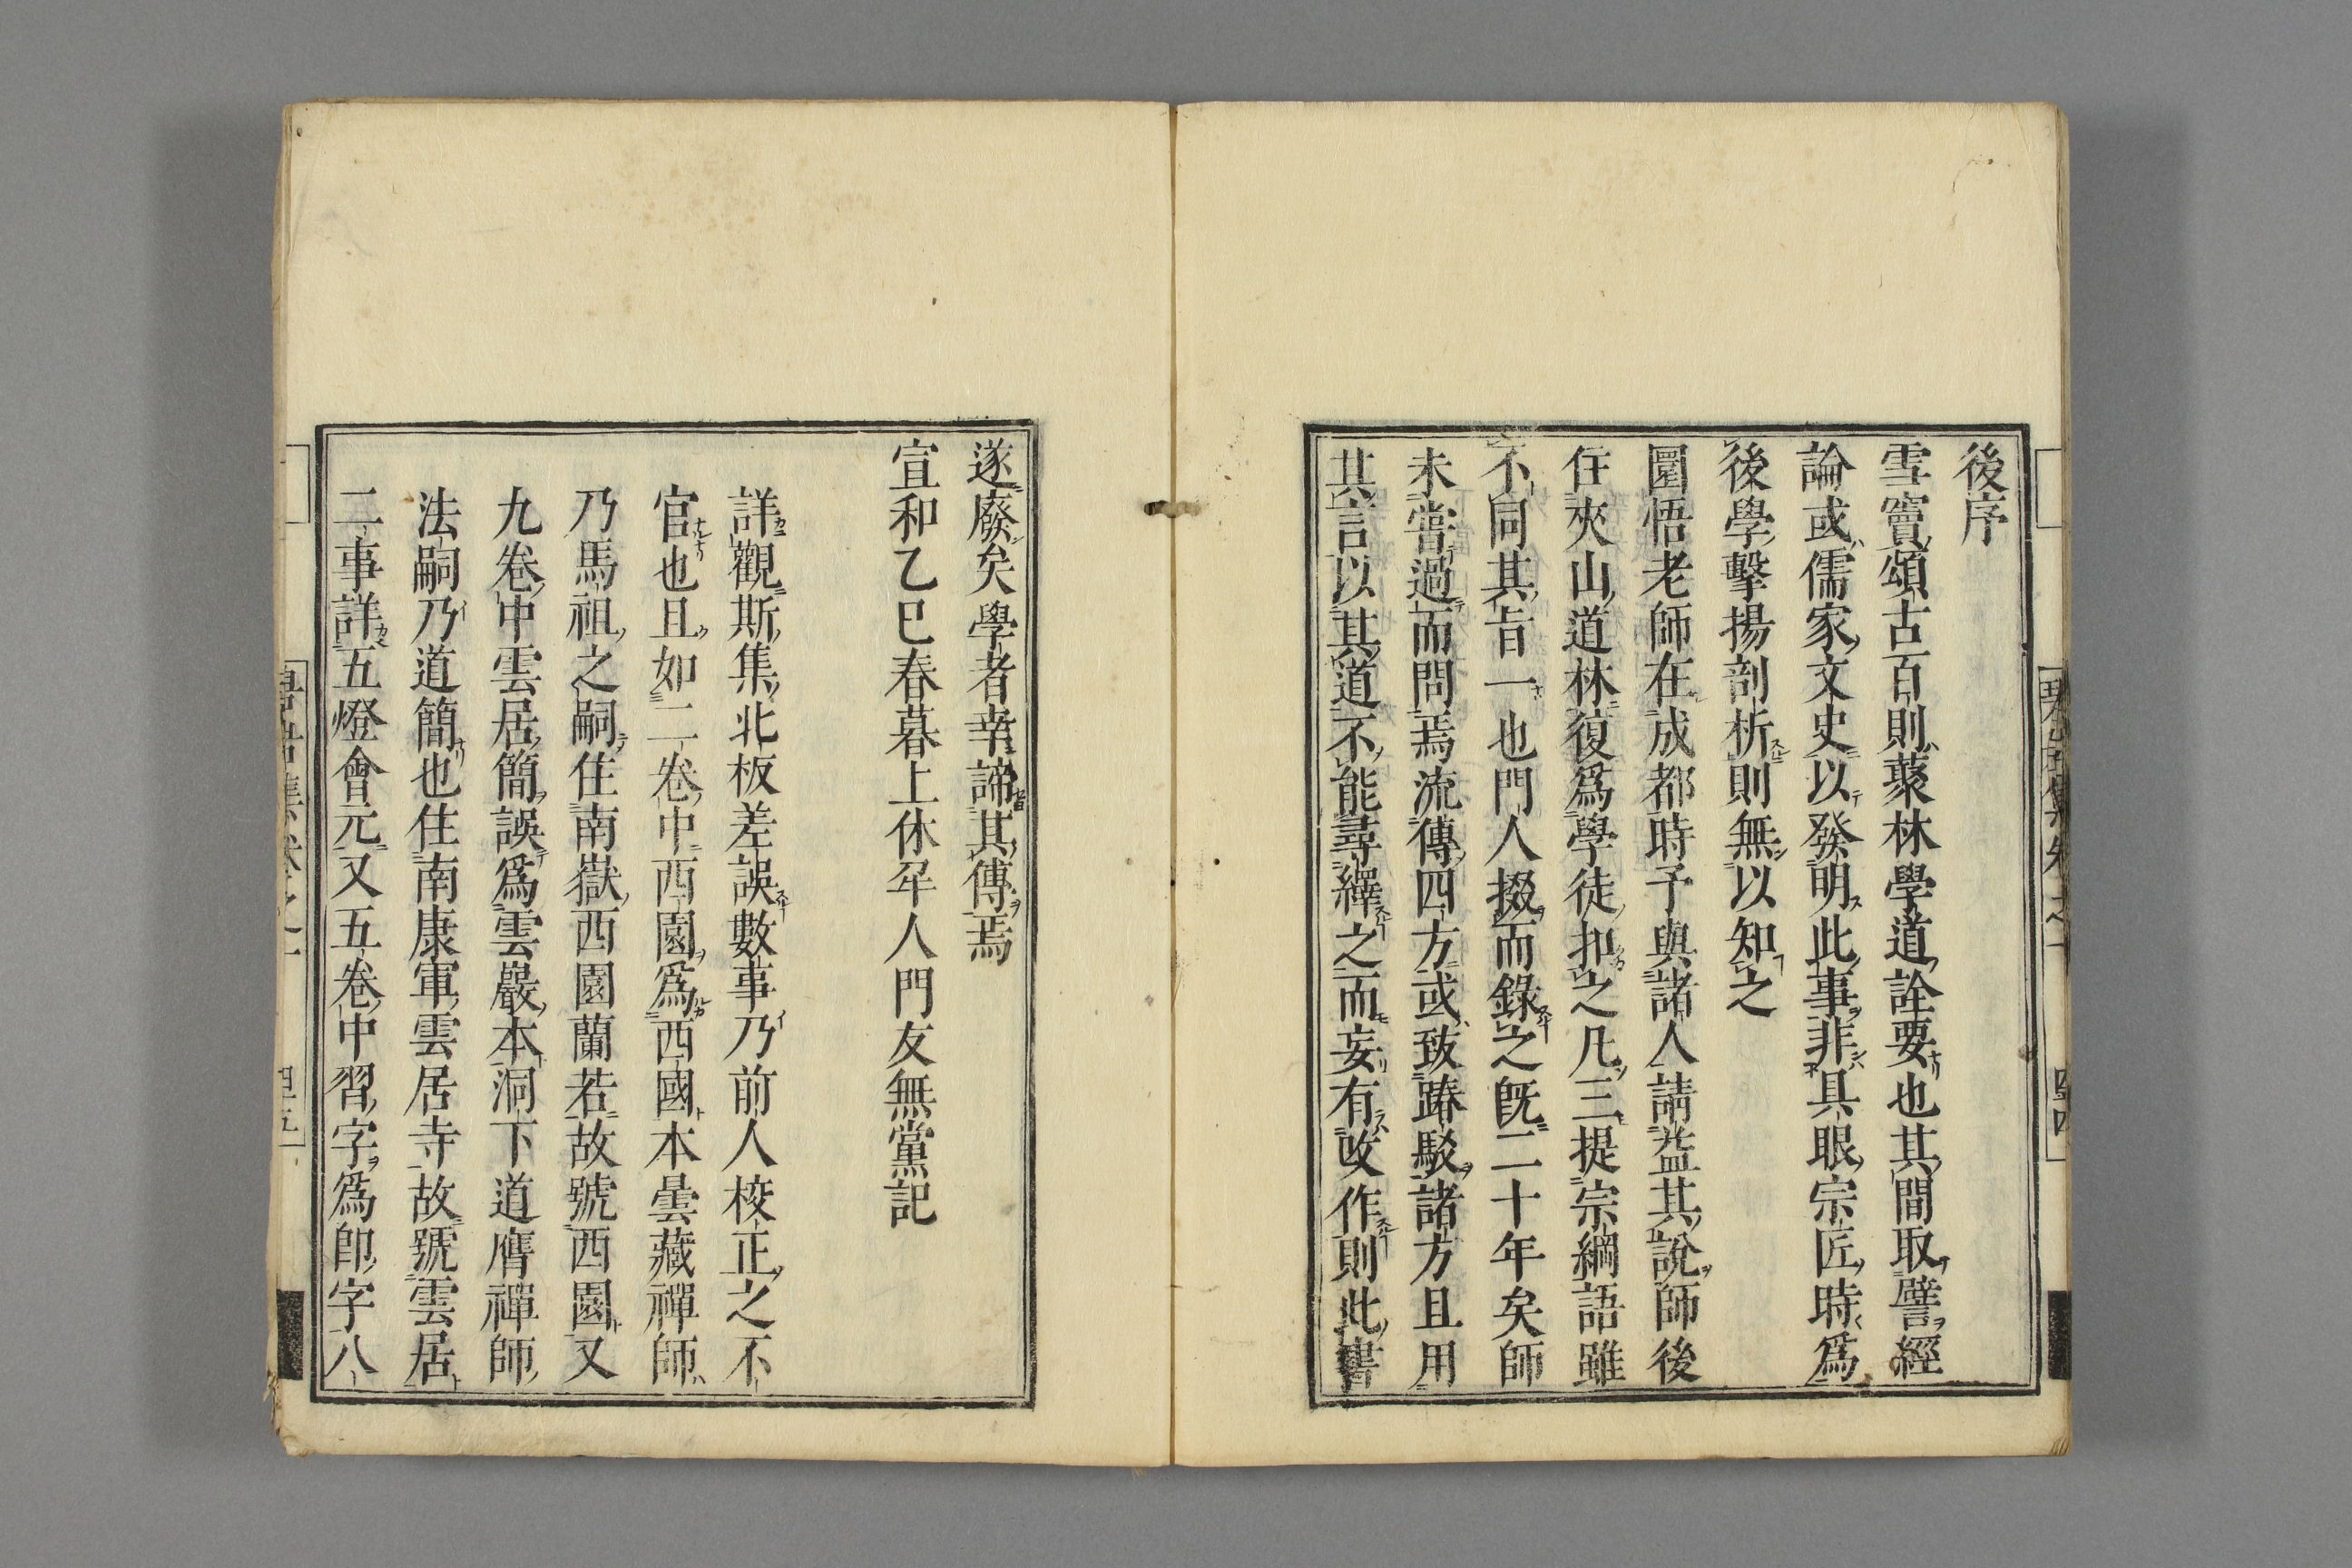 後序
雪竇頌古百則藂林學道詮要也其間取譬經
論或儒家文史以發明此事非具眼宗匠時爲
後學擊揚剖析則無以知之
圜悟老師在成都時予與諸人請益其說師後
住夾山道林復爲學徒扣之凡三提宗綱語雖
不同其旨一也門人掇而錄之旣二十年矣師
未嘗過而問焉流傳四方或致踳駁諸方且用
其言以其道不能尋繹之而妄有改作則此書
遂廢矣學者幸諦其傳焉
宣和乙巳春暮上休巠人門友無黨記
詳觀斯集北板差誤數事乃前人挍正之不
官也且如二卷中西園爲西國本曇藏禪師
乃馬祖之嗣住南嶽西園蘭若故號西園又
九卷中雲居簡誤爲雲巖本洞下道膺禪師
法嗣乃道簡也住南康軍雲居寺故號雲居
二事詳五燈會元又五卷中習字爲卽字八